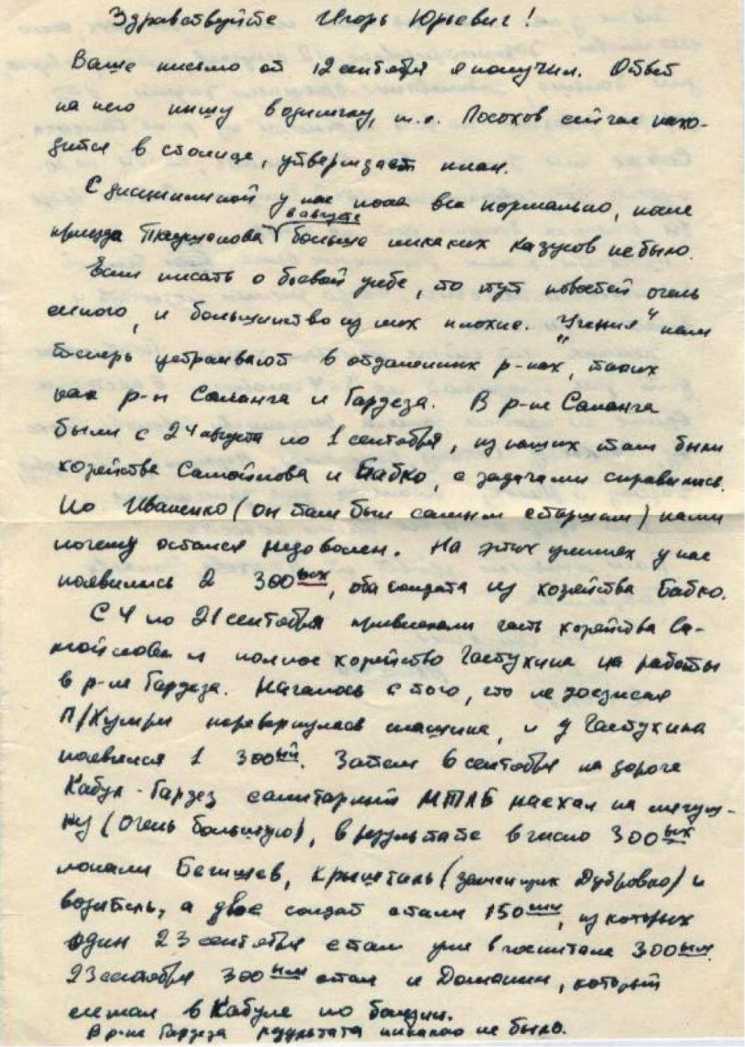 Здравствуйте Игорь Юрьевич!
Ваше письмо от 12 сентября я получил. Ответ
на него пишу в одиночку, т.е. Посохов сейчас нахо-
дится в столице, утверждает план.
С дисциплиной у нас пока все нормально, после
приезда в августе больше никаких казусов не было.
Если писать о боевой учебе, то тут новостей очень
много, и большинство из них плохие. "Учения" нам
теперь устраивают в отдаленных р-нах, таких
как р-н Саланга и Гардеза. В р-не Саланга
были с 24 августа по 1 сентября, из наших там были
хозяйства Самойлова и Бабко, с задачами справились.
Но Иваненко (он там был самым старшим) нами
почему остался недоволен. На этих учениях у нас
появились 2 300ых, оба солдата из хозяйства Бабко.
С 4 по 21 сентября привлекали часть хозяйства Са-
мойлова и полное хозяйство Частухина на работы
в р-не Гардеза. Началось с того, что не доезжая
П/Хумри перевернулась машина, и у Частухина
появился 1 300ый. Затем 6 сентября на дороге
Кабул-Гардез санитарный МТЛБ наехал на лягуш-
ку (очень большую), в результате в число 300ых
попали Бегишев, (заменщик Дубровко) и
водитель, а двое солдат стали 150ыми, из которых
один 23 сентября стал уже в госпитале 300ым.
23 сентября 300ым стал и Доманин, который
лежал в Кабуле по болезни.
В р-не Гардеза результата никакого не было.